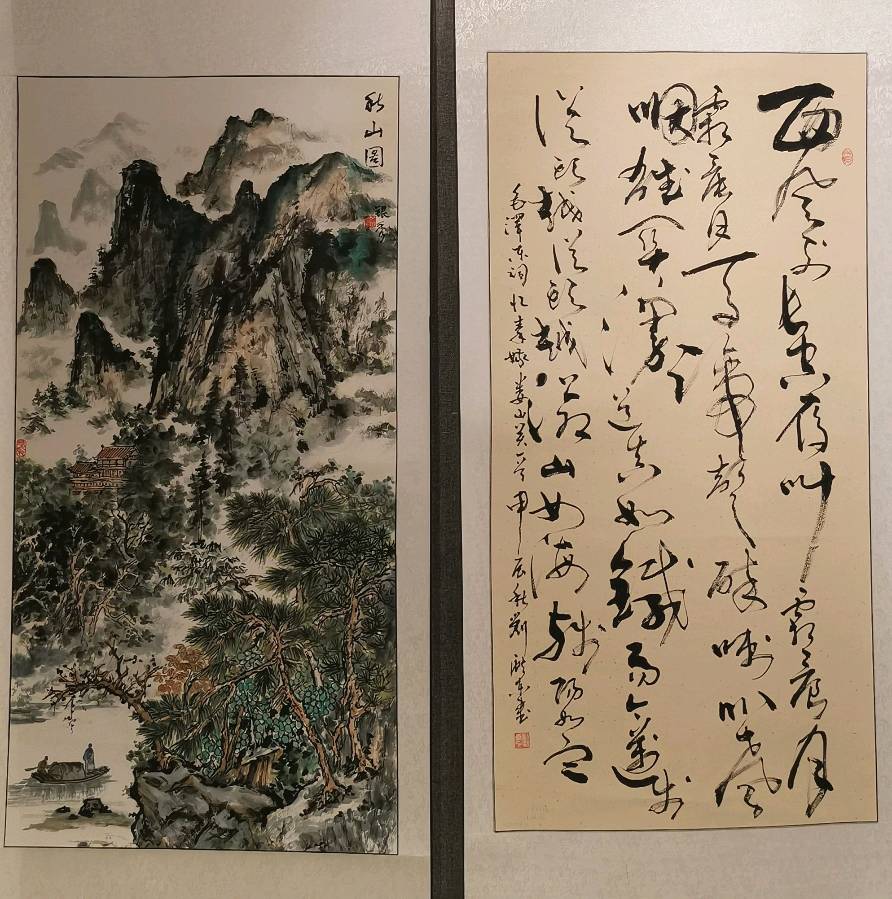 秋山图
西风烈长空雁叫霜晨月
霜晨月马蹄声碎喇叭声
咽雄关漫道真如鐵而今迈步
從頭越從頭越苍山如海残阳如血
毛澤东词忆秦娥娄山关一首甲辰秋刘东书